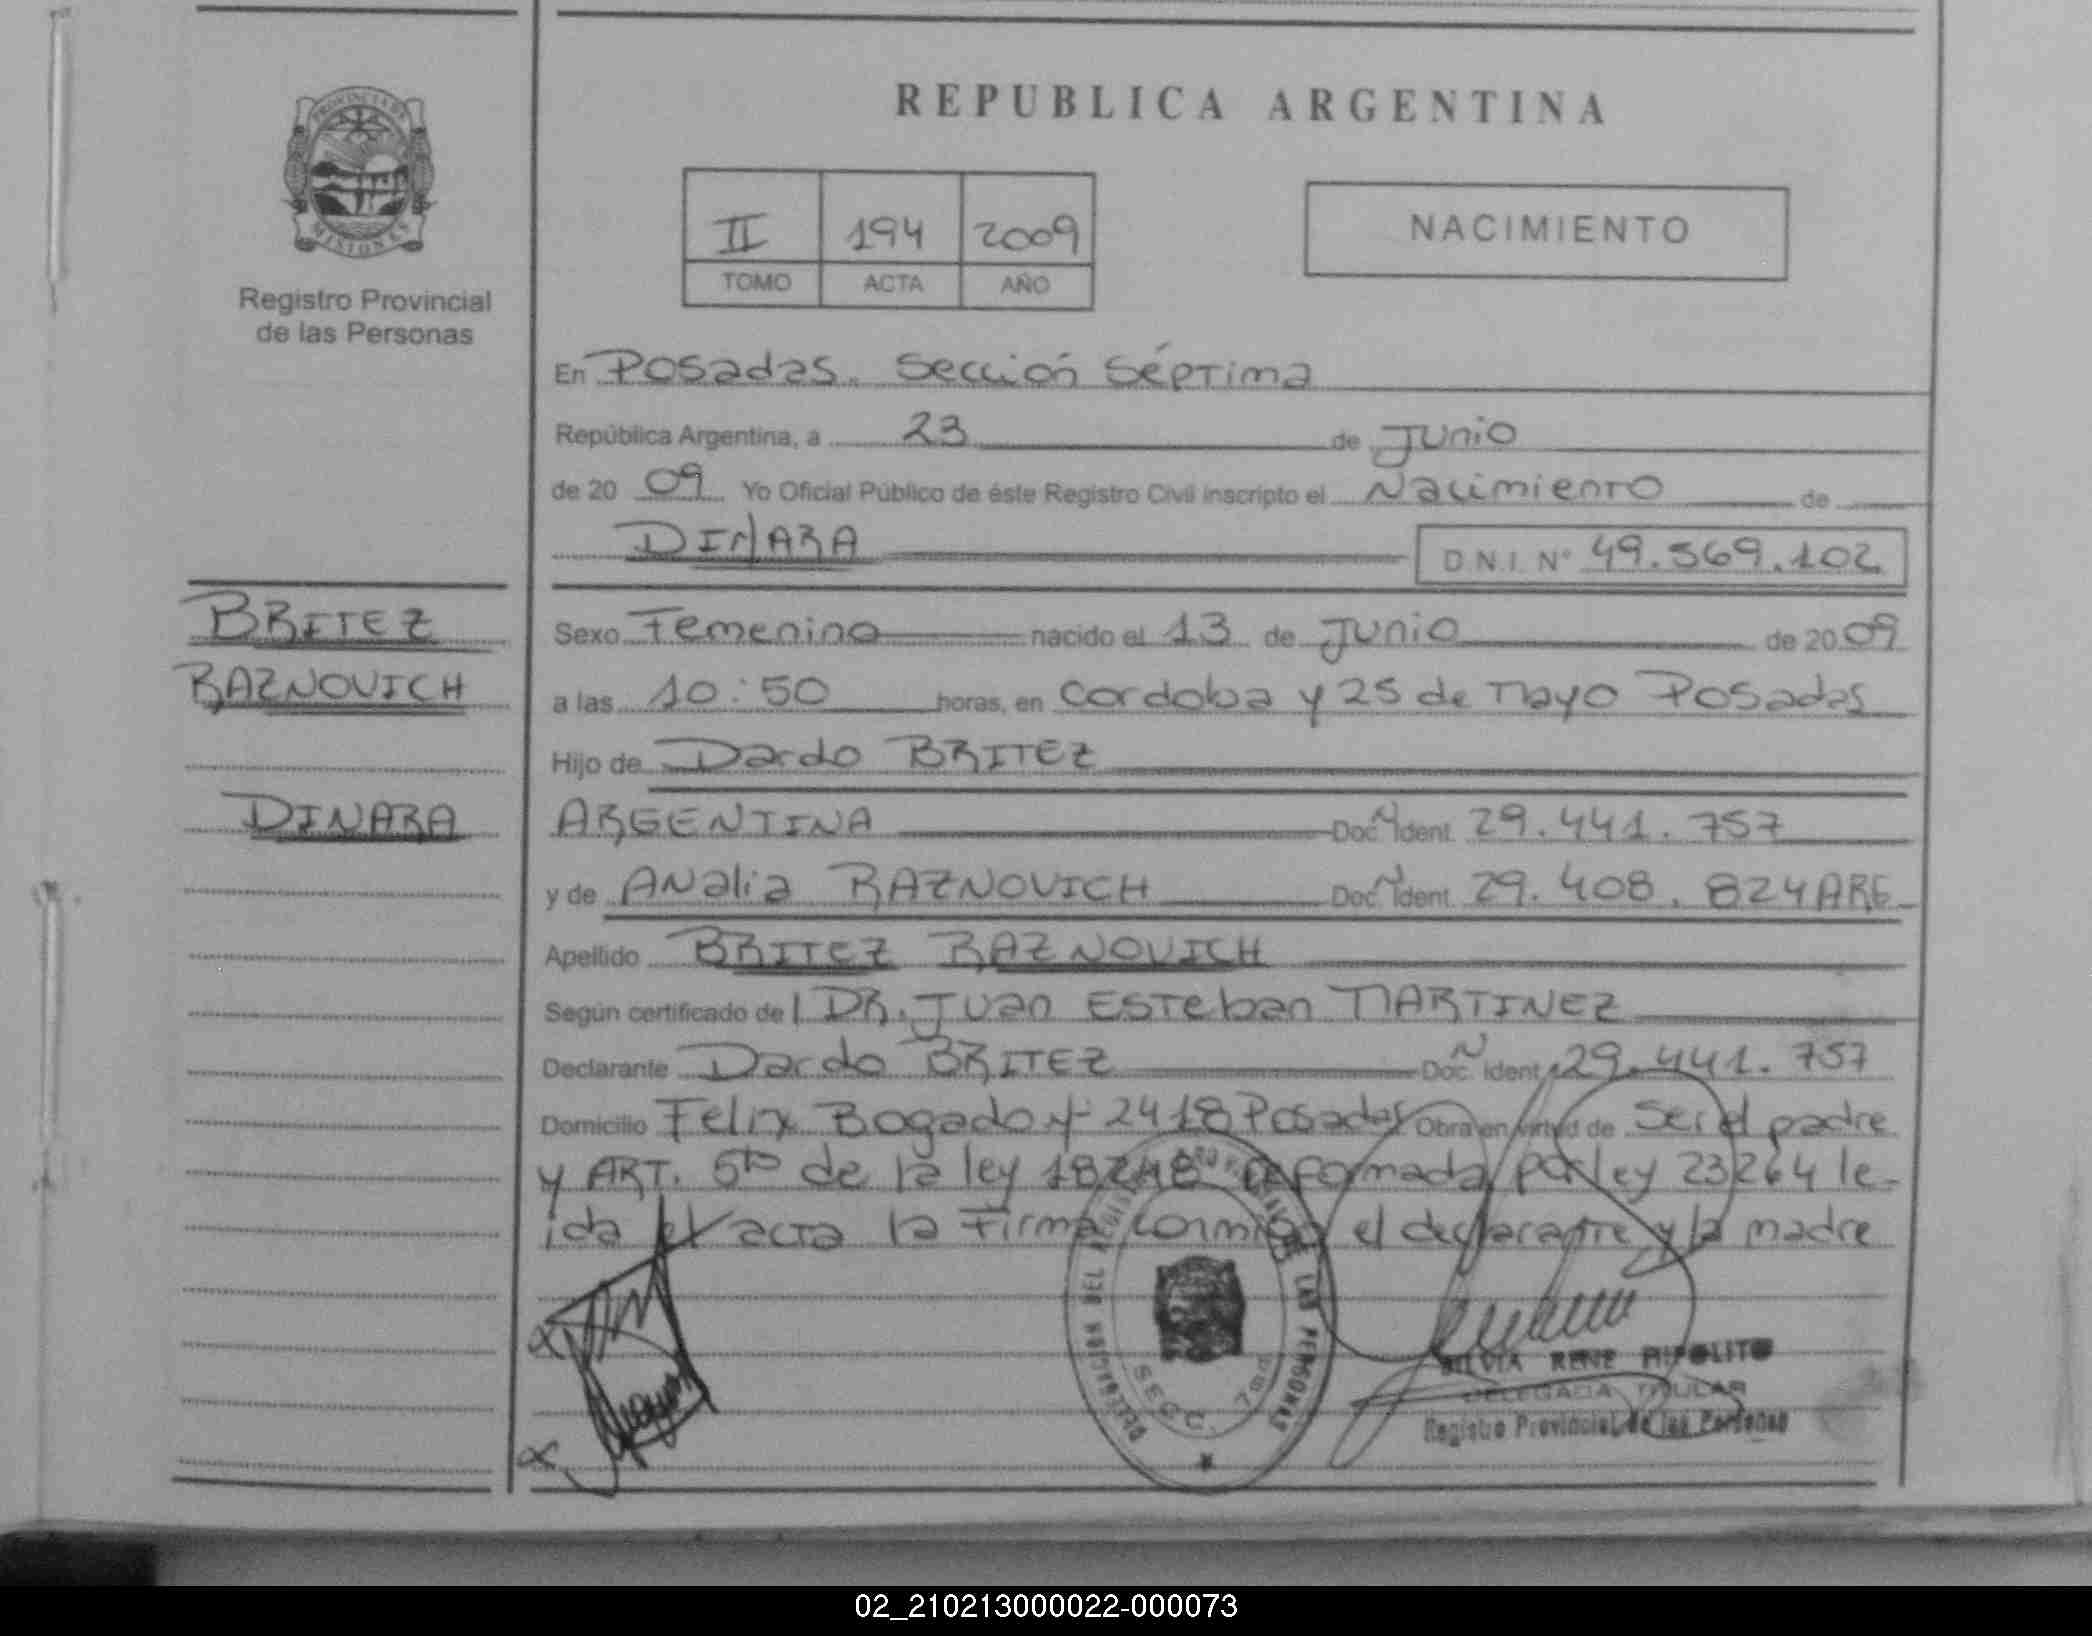 REPUBLICA ARGENTINA
PROVINCIA DE
MISIONES
Registro Provincial
de las Personas
II 194 2009
TOMO ACTA AÑO
NACIMIENTO
En Posadas. Sección Séptima
República Argentina, a 23 de Junio
de 20 09 Yo Oficial Público de éste Registro Civil inscripto el Nacimiento de
DINARA D.N.I. N° 49.569.102
BRITEZ
RAZNOVICH
DINARA
Sexo Femenino nacido el 13 de Junio de 20 09
a las 10:50 horas, en Cordoba y 25 de Mayo Posadas
Hijo de Dardo BRITEZ
ARGENTINA Doc. N Ident. 29.441.757
y de Analia RAZNOVICH Doc. N Ident. 29.408.824 ARG
Apellido BRITEZ RAZNOVICH
Según certificado de l DR. Juan Esteban MARTINEZ
Declarante Dardo BRITEZ Doc. N Ident. 29.441.757
Domicilio Felix Bogado N° 2418 Posadas Obra en virtud de Ser el padre
y ART. 5to de la ley 18248 reformada por ley 23264 le-
ida el acta la Firma conmigo el declarante y la madre
DEL REGISTRO PROVINCIAL DE LAS PERSONAS
SECC. 7ma
SILVIA RENE HIPOLITO
DELEGADA TITULAR
Registro Provincial de las Personas
02_210213000022-000073